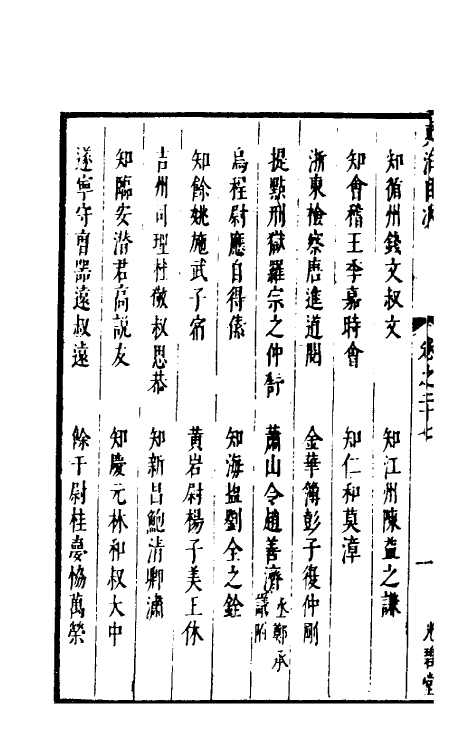 卷之二十七
一
光碧堂
知循州錢文叔文
知江州陳益之謙
知會稽王季嘉時會
知仁和莫漳
浙東檢察唐進道閱
金華簿彭子復仲剛
提點刑獄羅宗之仲
蕭山令趙善濟
丞鄭承議附
烏程尉應自得傃
知海鹽劉全之銓
知餘姚施武子宿
黃岩尉楊子美王休
吉州司理杜徵叔思恭
知新昌鮑清卿潚
知臨安潛君高說友
知慶元林和叔大中
遂寧守曹器遠叔遠
餘干尉桂夢協萬榮